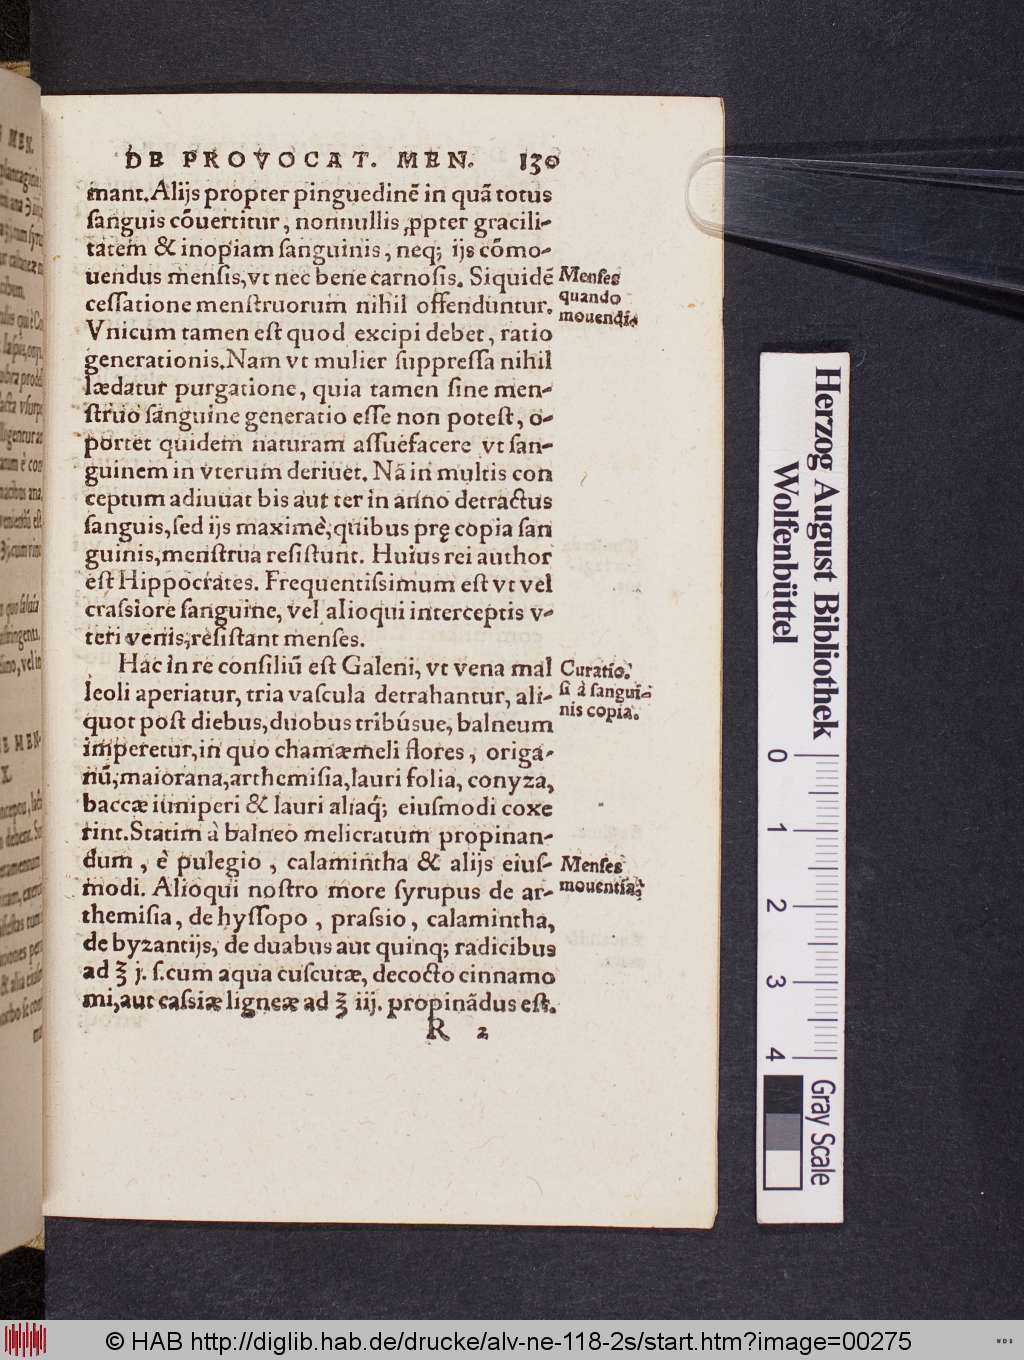 DE PROVOCAT. MEN. 130
mant. Alijs propter pinguedinẽ in quã totus
ſanguis cõuertitur, nonnullis ꝓpter gracili-
tatem & inopiam ſanguinis, neq; ijs cõmo-
uendus menſis, vt nec bene carnoſis. Siquidẽ
ceſſatione menſtruorum nihil offenduntur.
Vnicum tamen eſt quod excipi debet, ratio
generationis. Nam vt mulier ſuppreſſa nihil
lædatur purgatione, quia tamen ſine men-
ſtruo ſanguine generatio eſſe non poteſt, o-
portet quidem naturam aſſuefacere vt ſan-
guinem in vterum deriuet. Nã in multis con
ceptum adiuuat bis aut ter in anno detractus
ſanguis, ſed ijs maximè, quibus prę copia ſan
guinis, menſtrua reſiſtunt. Huius rei author
eſt Hippocrates. Frequentiſsimum eſt vt vel
craſsiore ſanguine, vel alioqui interceptis v-
teri venis, reſiſtant menſes.
Menſes
quando
mouendi.
Hac in re conſiliũ eſt Galeni, vt vena mal
leoli aperiatur, tria vaſcula detrahantur, ali-
quot poſt diebus, duobus tribúsue, balneum
imperetur, in quo chamæmeli flores, origa-
nũ, maiorana, arthemiſia, lauri folia, conyza,
baccæ iuniperi & lauri aliaq; eiuſmodi coxe
rint. Statim à balneo melicratum propinan-
dum, è pulegio, calamintha & alijs eiuſ-
modi. Alioqui noſtro more ſyrupus de ar-
themiſia, de hyſſopo, praſsio, calamintha,
de byzantijs, de duabus aut quinq; radicibus
ad ℥ j. ſ. cum aqua cuſcutæ, decocto cinnamo
mi, aut caſsiæ ligneæ ad ℥ iij. propinãdus eſt.
Curatio.
ſi à ſangui-
nis copia.
Menſes
mouentia.
R 2
Herzog August Bibliothek
Wolfenbüttel
0 1 2 3 4
Gray Scale
© HAB http://diglib.hab.de/drucke/alv-ne-118-2s/start.htm?image=00275